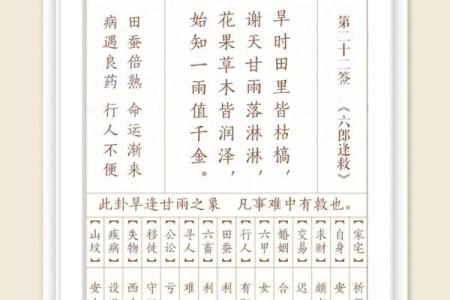 第二十二签 《六郎逢救》
旱时田里皆枯槁，
谢天甘雨落淋淋，
花果草木皆润泽，
始知一雨值千金。
田蚕倍熟 命运渐来
病遇良药 行人不便
此卦旱逢甘雨之象 凡事难中有救也。
【家宅】祈
【自身】安
【求财】颇
【交易】迟
【婚姻】合
【六甲】女
【行人】有
【田蚕】利
【六畜】利
【寻人】难
【公讼】亏
【移徙】守
【失物】西
【疾病】设
【山坟】安